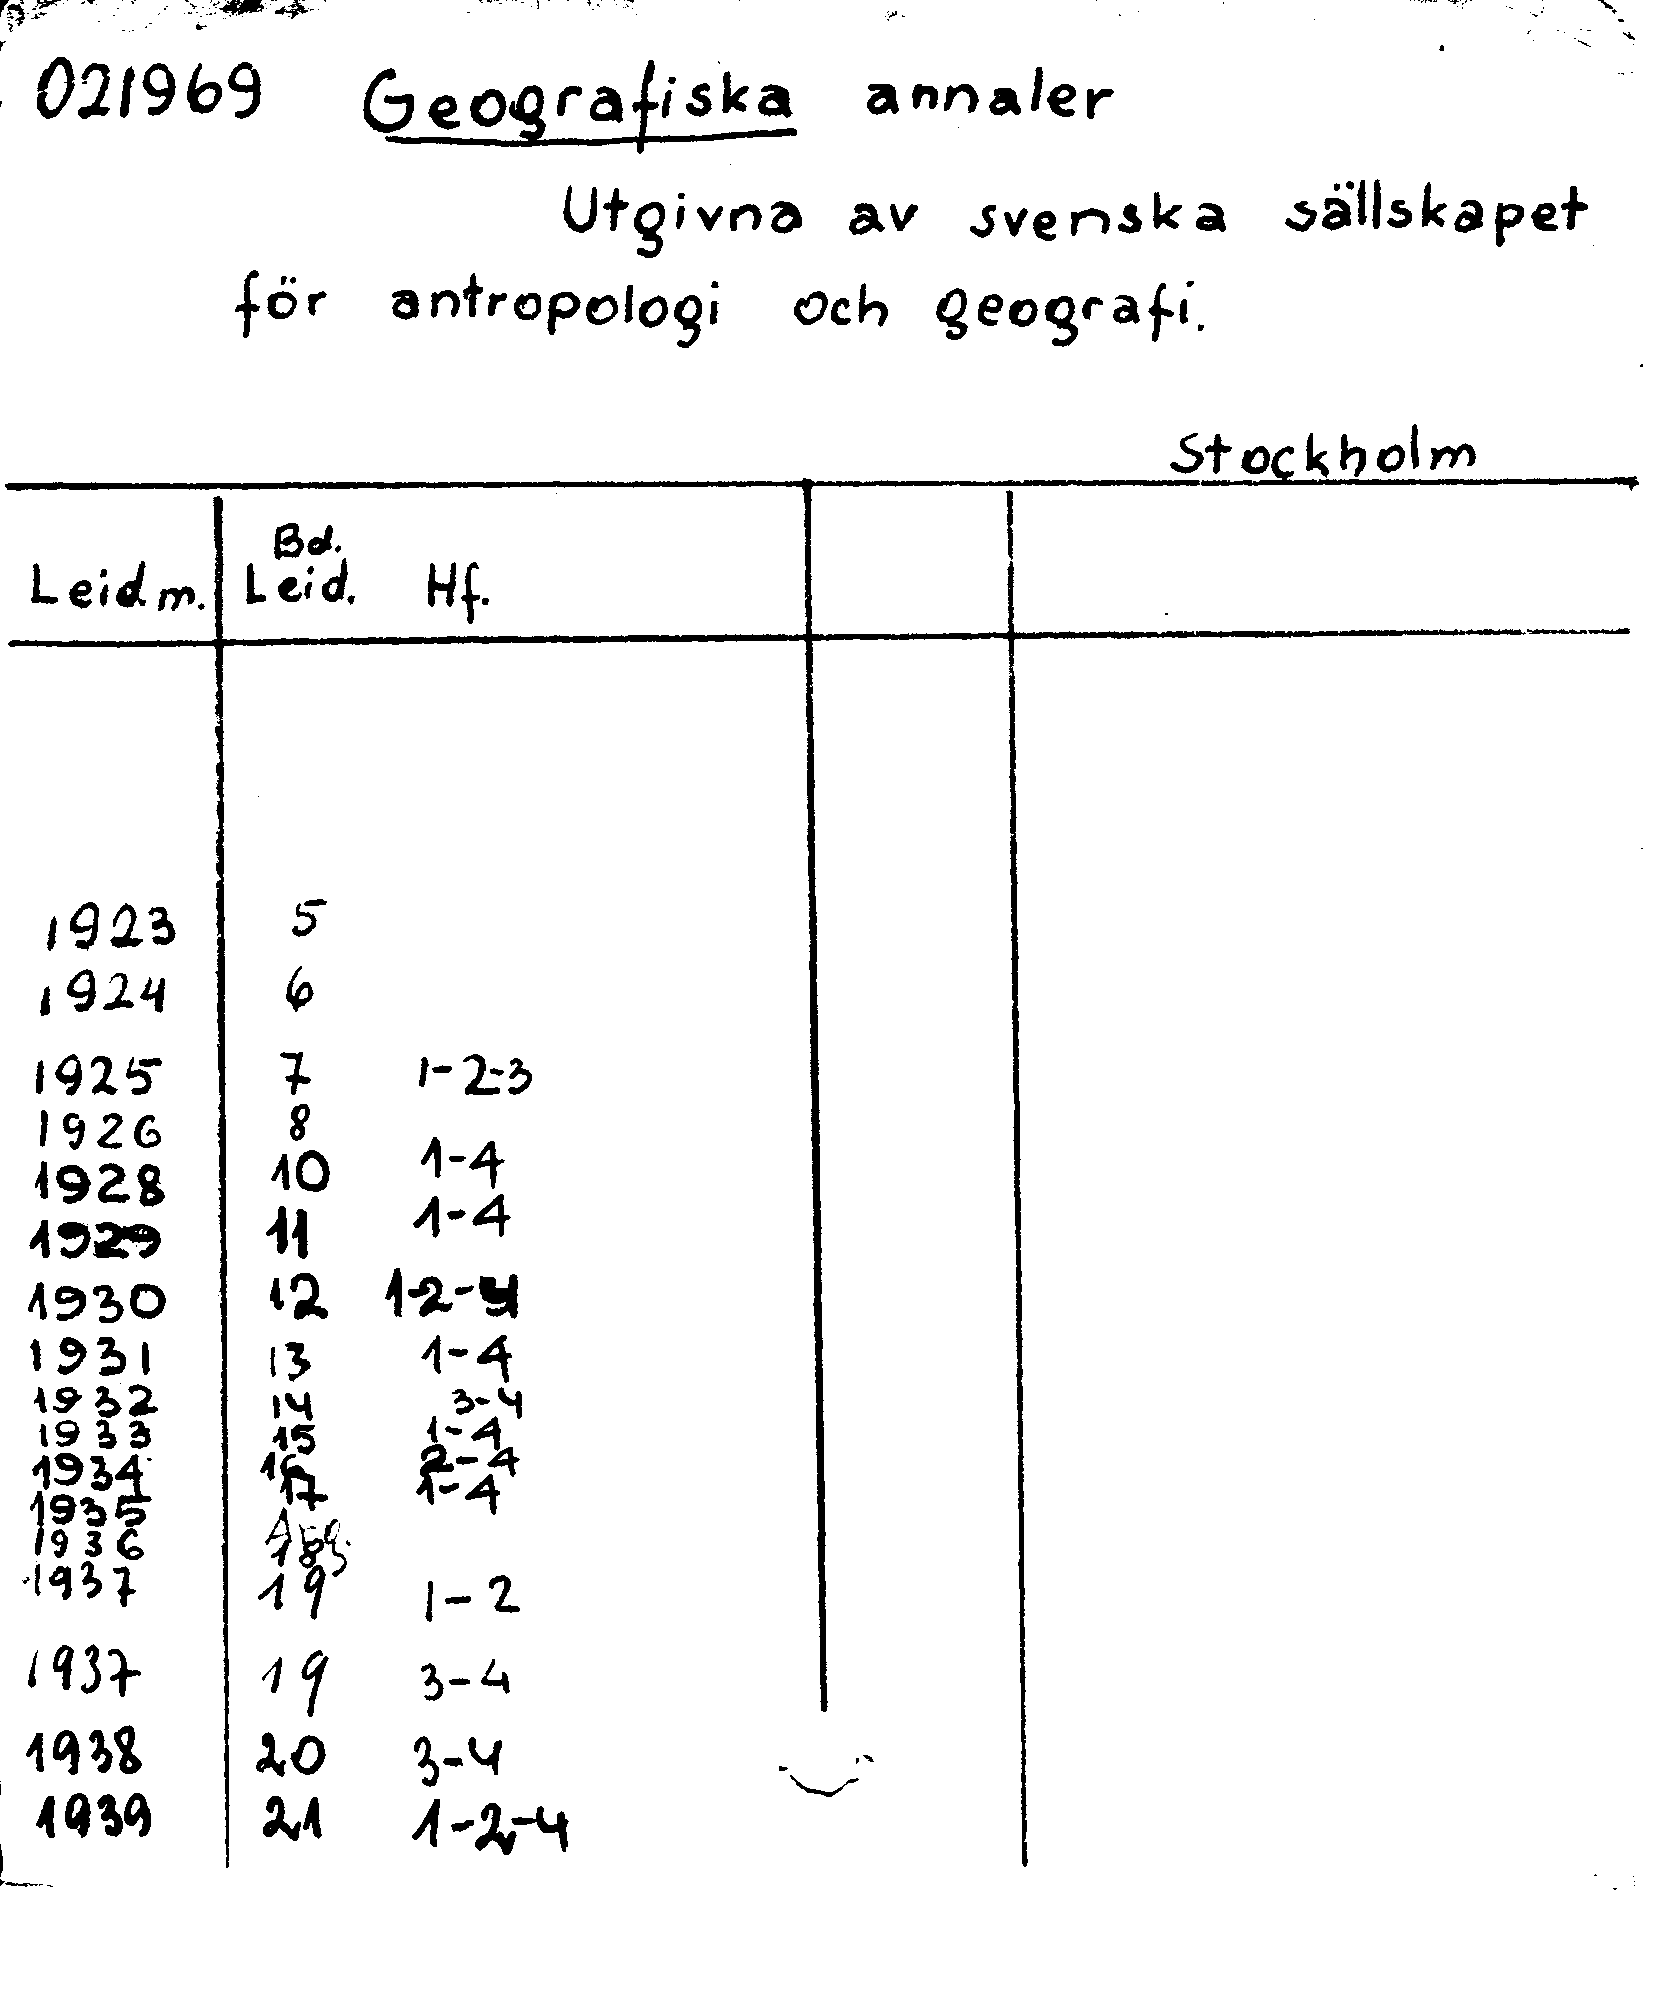 021969 Geografiska annaler
Utgivna av svenska sällskapet
för antropologi och geografi.
Stockholm
Leidm. Bd. Leid. Hf.
1923 5
1924 6
1925 7 1-2-3
1926 8
1928 10 1-4
1929 11 1-4
1930 12 1-2-4
1931 13 1-4
1932 14 3-4
1933 15 1-4
1934 16 2-4
1935 17 1-4
1936 18
1937 19 1-2
1937 19 3-4
1938 20 3-4
1939 21 1-2-4